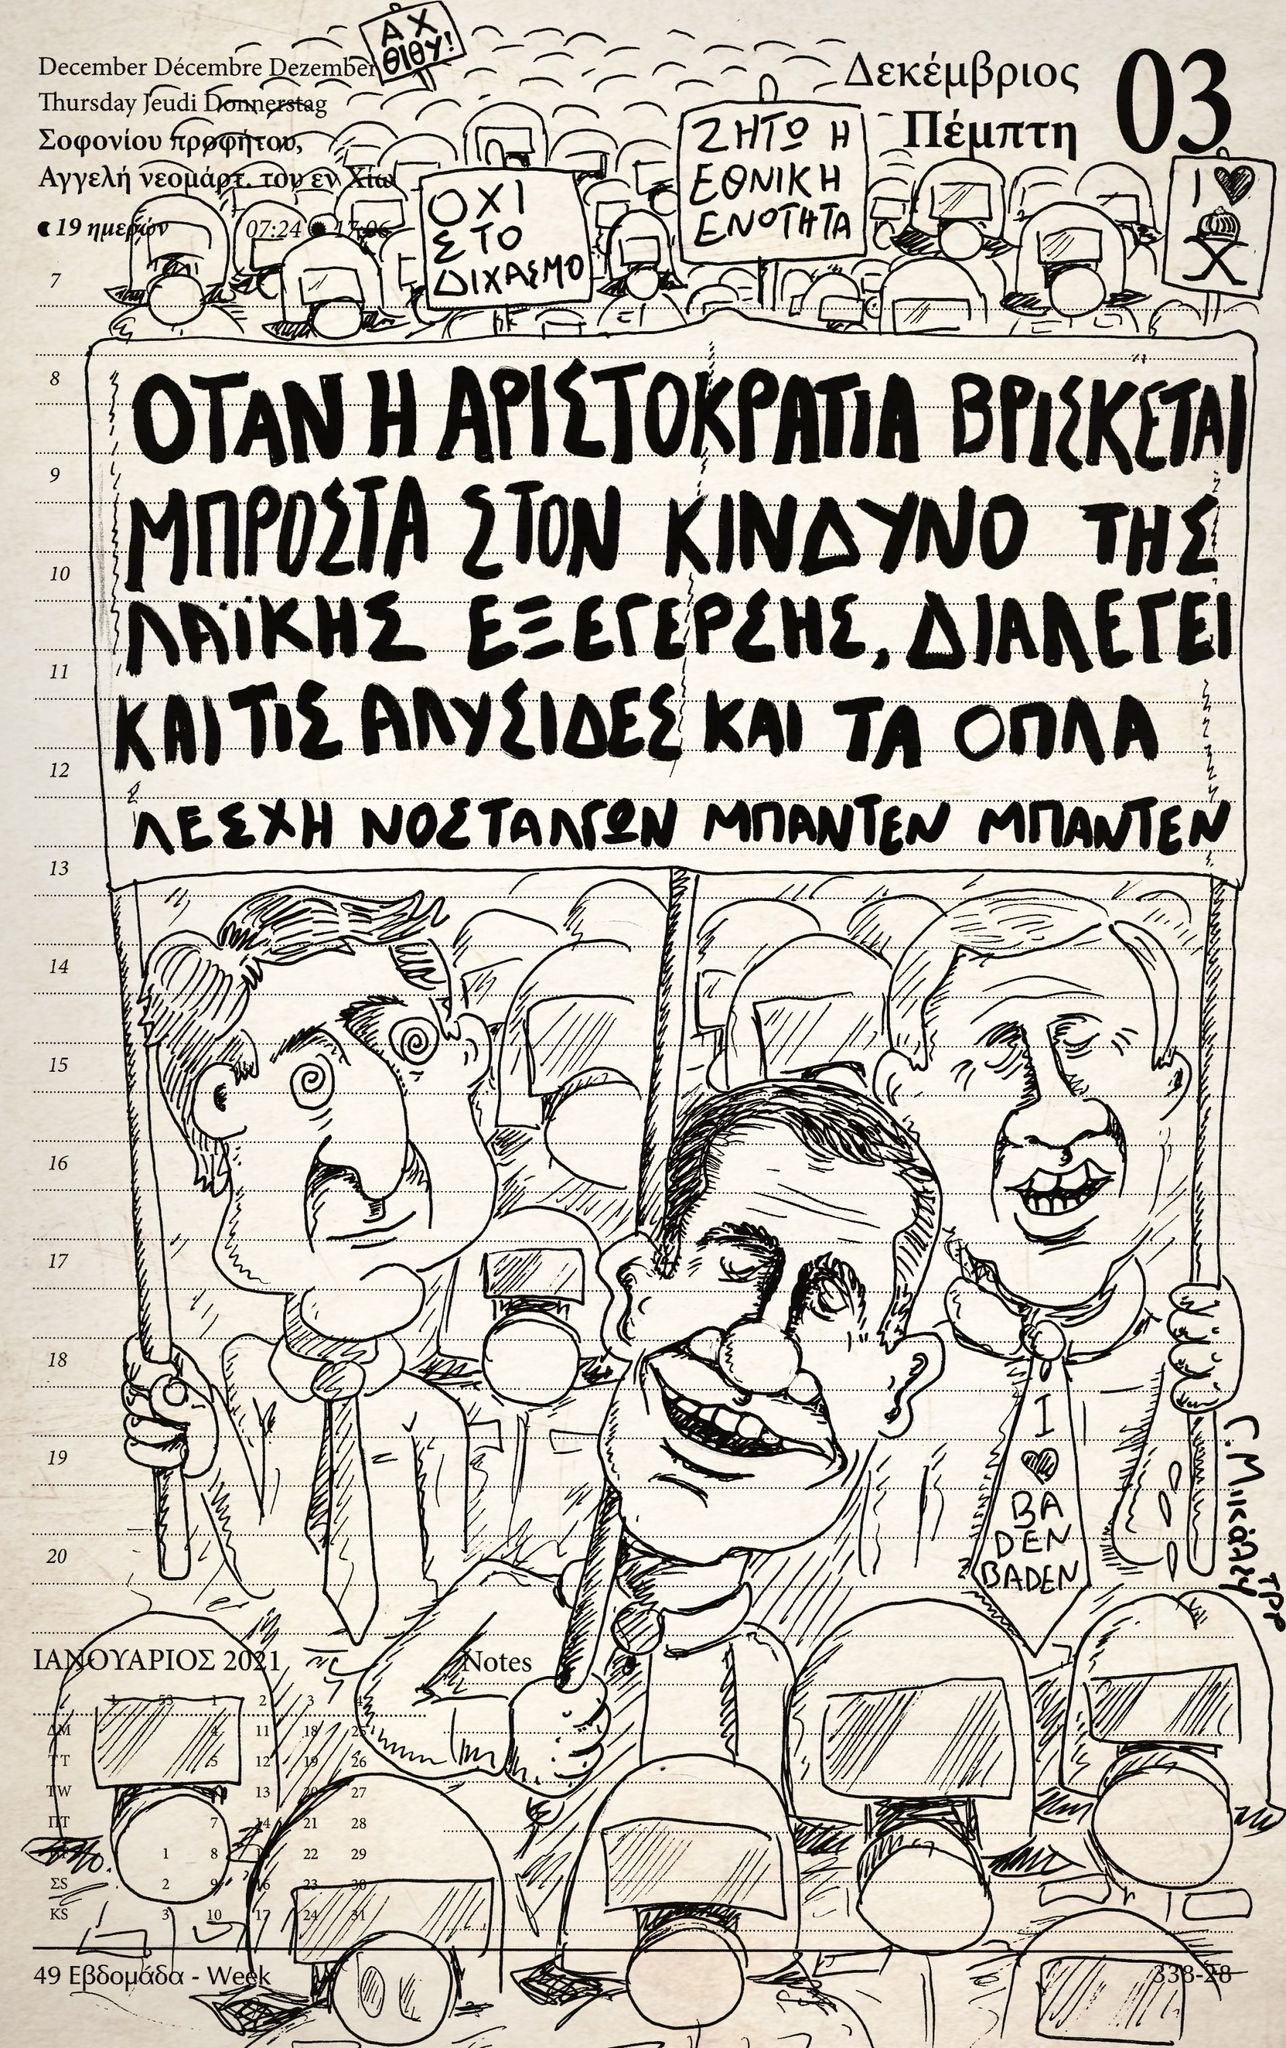 December Décembre Dezember
Thursday Jeudi Donnerstag
Σοφονίου προφήτου,
Αγγελή νεομάρτ. του εν Χίω
19 ημερών 07:24 17:06
Δεκέμβριος 03
Πέμπτη
ΑΧ
ΘΙΘΥ!
ΟΧΙ
ΣΤΟ
ΔΙΧΑΣΜΟ
ΖΗΤΩ Η
ΕΘΝΙΚΗ
ΕΝΟΤΗΤΑ
I
7
8
9
10
11
12
13
14
15
16
17
18
19
20
ΟΤΑΝ Η ΑΡΙΣΤΟΚΡΑΤΙΑ ΒΡΙΣΚΕΤΑΙ
ΜΠΡΟΣΤΑ ΣΤΟΝ ΚΙΝΔΥΝΟ ΤΗΣ
ΛΑΪΚΗΣ ΕΞΕΓΕΡΣΗΣ, ΔΙΑΛΕΓΕΙ
ΚΑΙ ΤΙΣ ΑΛΥΣΙΔΕΣ ΚΑΙ ΤΑ ΟΠΛΑ
ΛΕΣΧΗ ΝΟΣΤΑΛΓΩΝ ΜΠΑΝΤΕΝ ΜΠΑΝΤΕΝ
I
BA
DEN
BADEN
Γ. Μικάλεφ
TPP
ΙΑΝΟΥΑΡΙΟΣ 2021
Notes
53 1 2 3 4
ΔM 4 11 18 25
ΤT 5 12 19 26
ΤW 13 20 27
ΠΤ 7 14 21 28
1 8 22 29
ΣS 2 9 16 23 30
ΚS 3 10 17 24 31
49 Εβδομάδα - Week
338-28